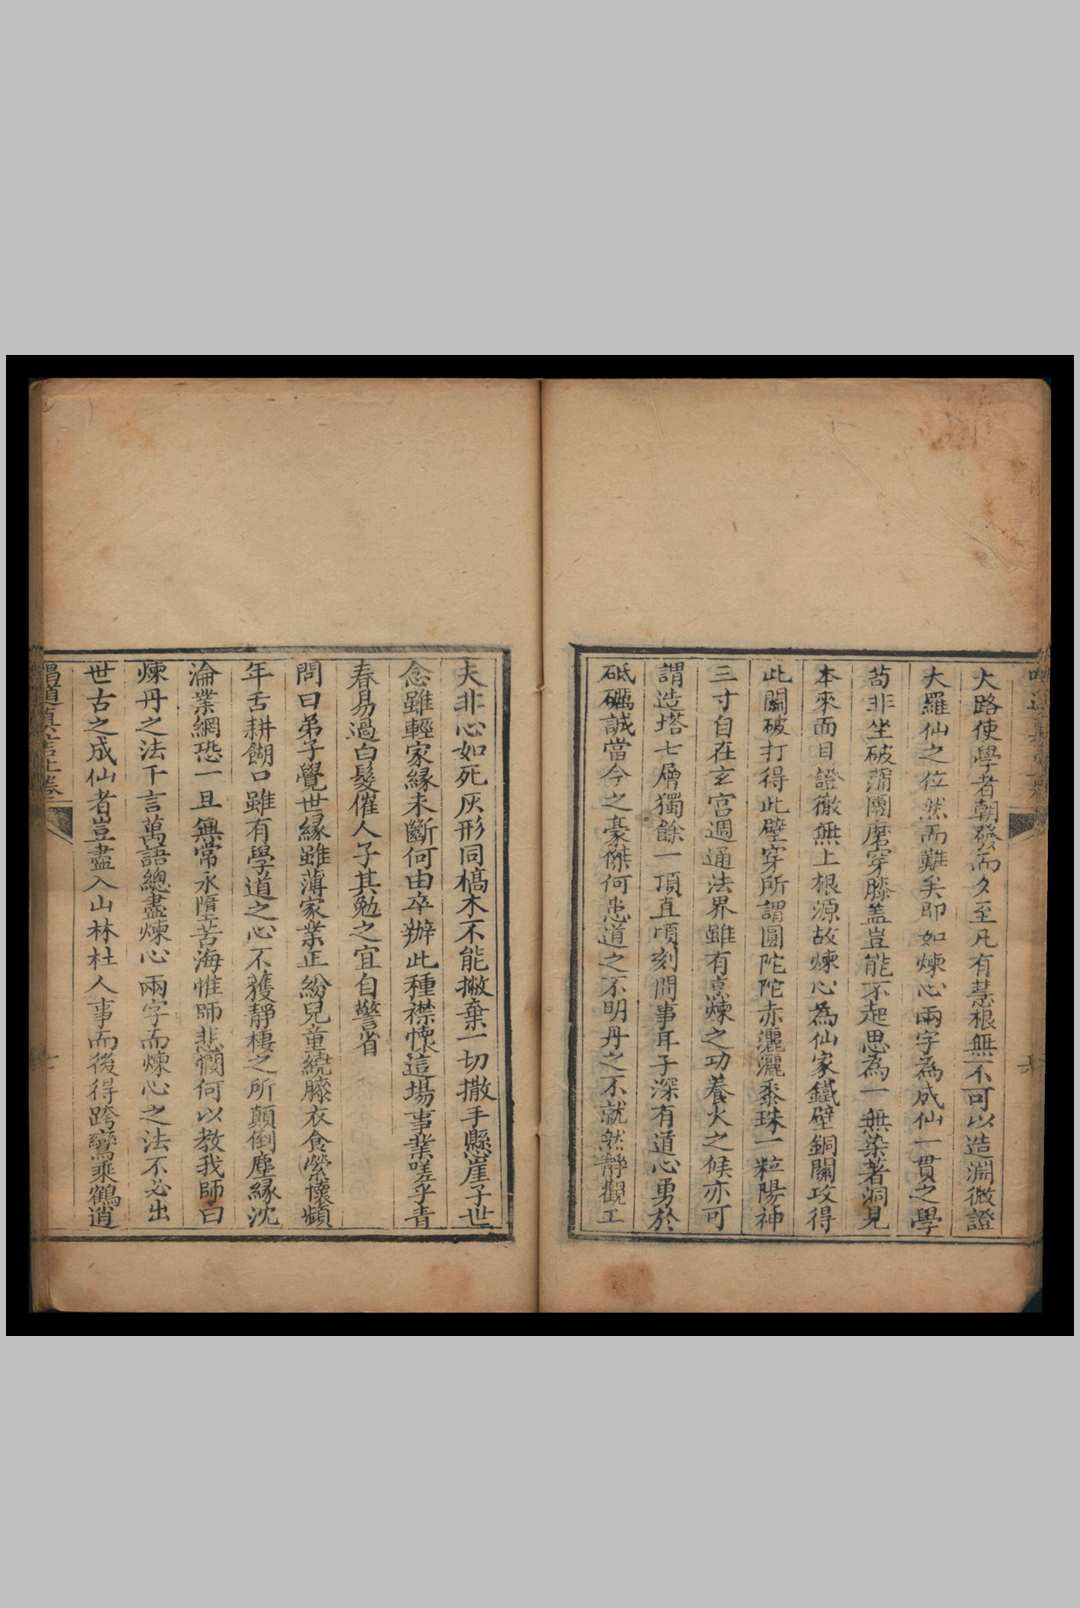 大路使學者朝發而夕至凡有慧根無不可以造淵微證
大羅仙之位然而難矣即如煉心兩字為成仙一貫之學
苟非坐破蒲團磨穿膝蓋豈能不起思為一無染著洞見
本來面目證徹無上根源故煉心為仙家鐵壁銅關攻得
此關破打得此壁穿所謂圓陀陀赤灑灑黍珠一粒陽神
三寸自在玄宮週通法界雖有烹煉之功養火之候亦可
謂造塔七層獨餘一頂直頃刻間事耳子深有道心勇於
砥礪誠當今之豪傑何患道之不明丹之不就然靜觀工
夫非心如死灰形同槁木不能撇棄一切撒手懸崖子世
念雖輕家緣未斷何由卒辦此種襟懷這場事業嗟乎青
春易過白髮催人子其勉之宜自警省
問曰弟子覺世緣雖薄家業正紛兒童繞膝衣食縈懷頻
年舌耕餬口雖有學道之心不獲靜棲之所顛倒塵緣沈
淪業網恐一旦無常永墮苦海惟師悲憫何以教我師曰
煉丹之法千言萬語總盡煉心兩字而煉心之法不必出
世古之成仙者豈盡入山林杜人事而後得跨鸞乘鶴逍
唱道真言上卷